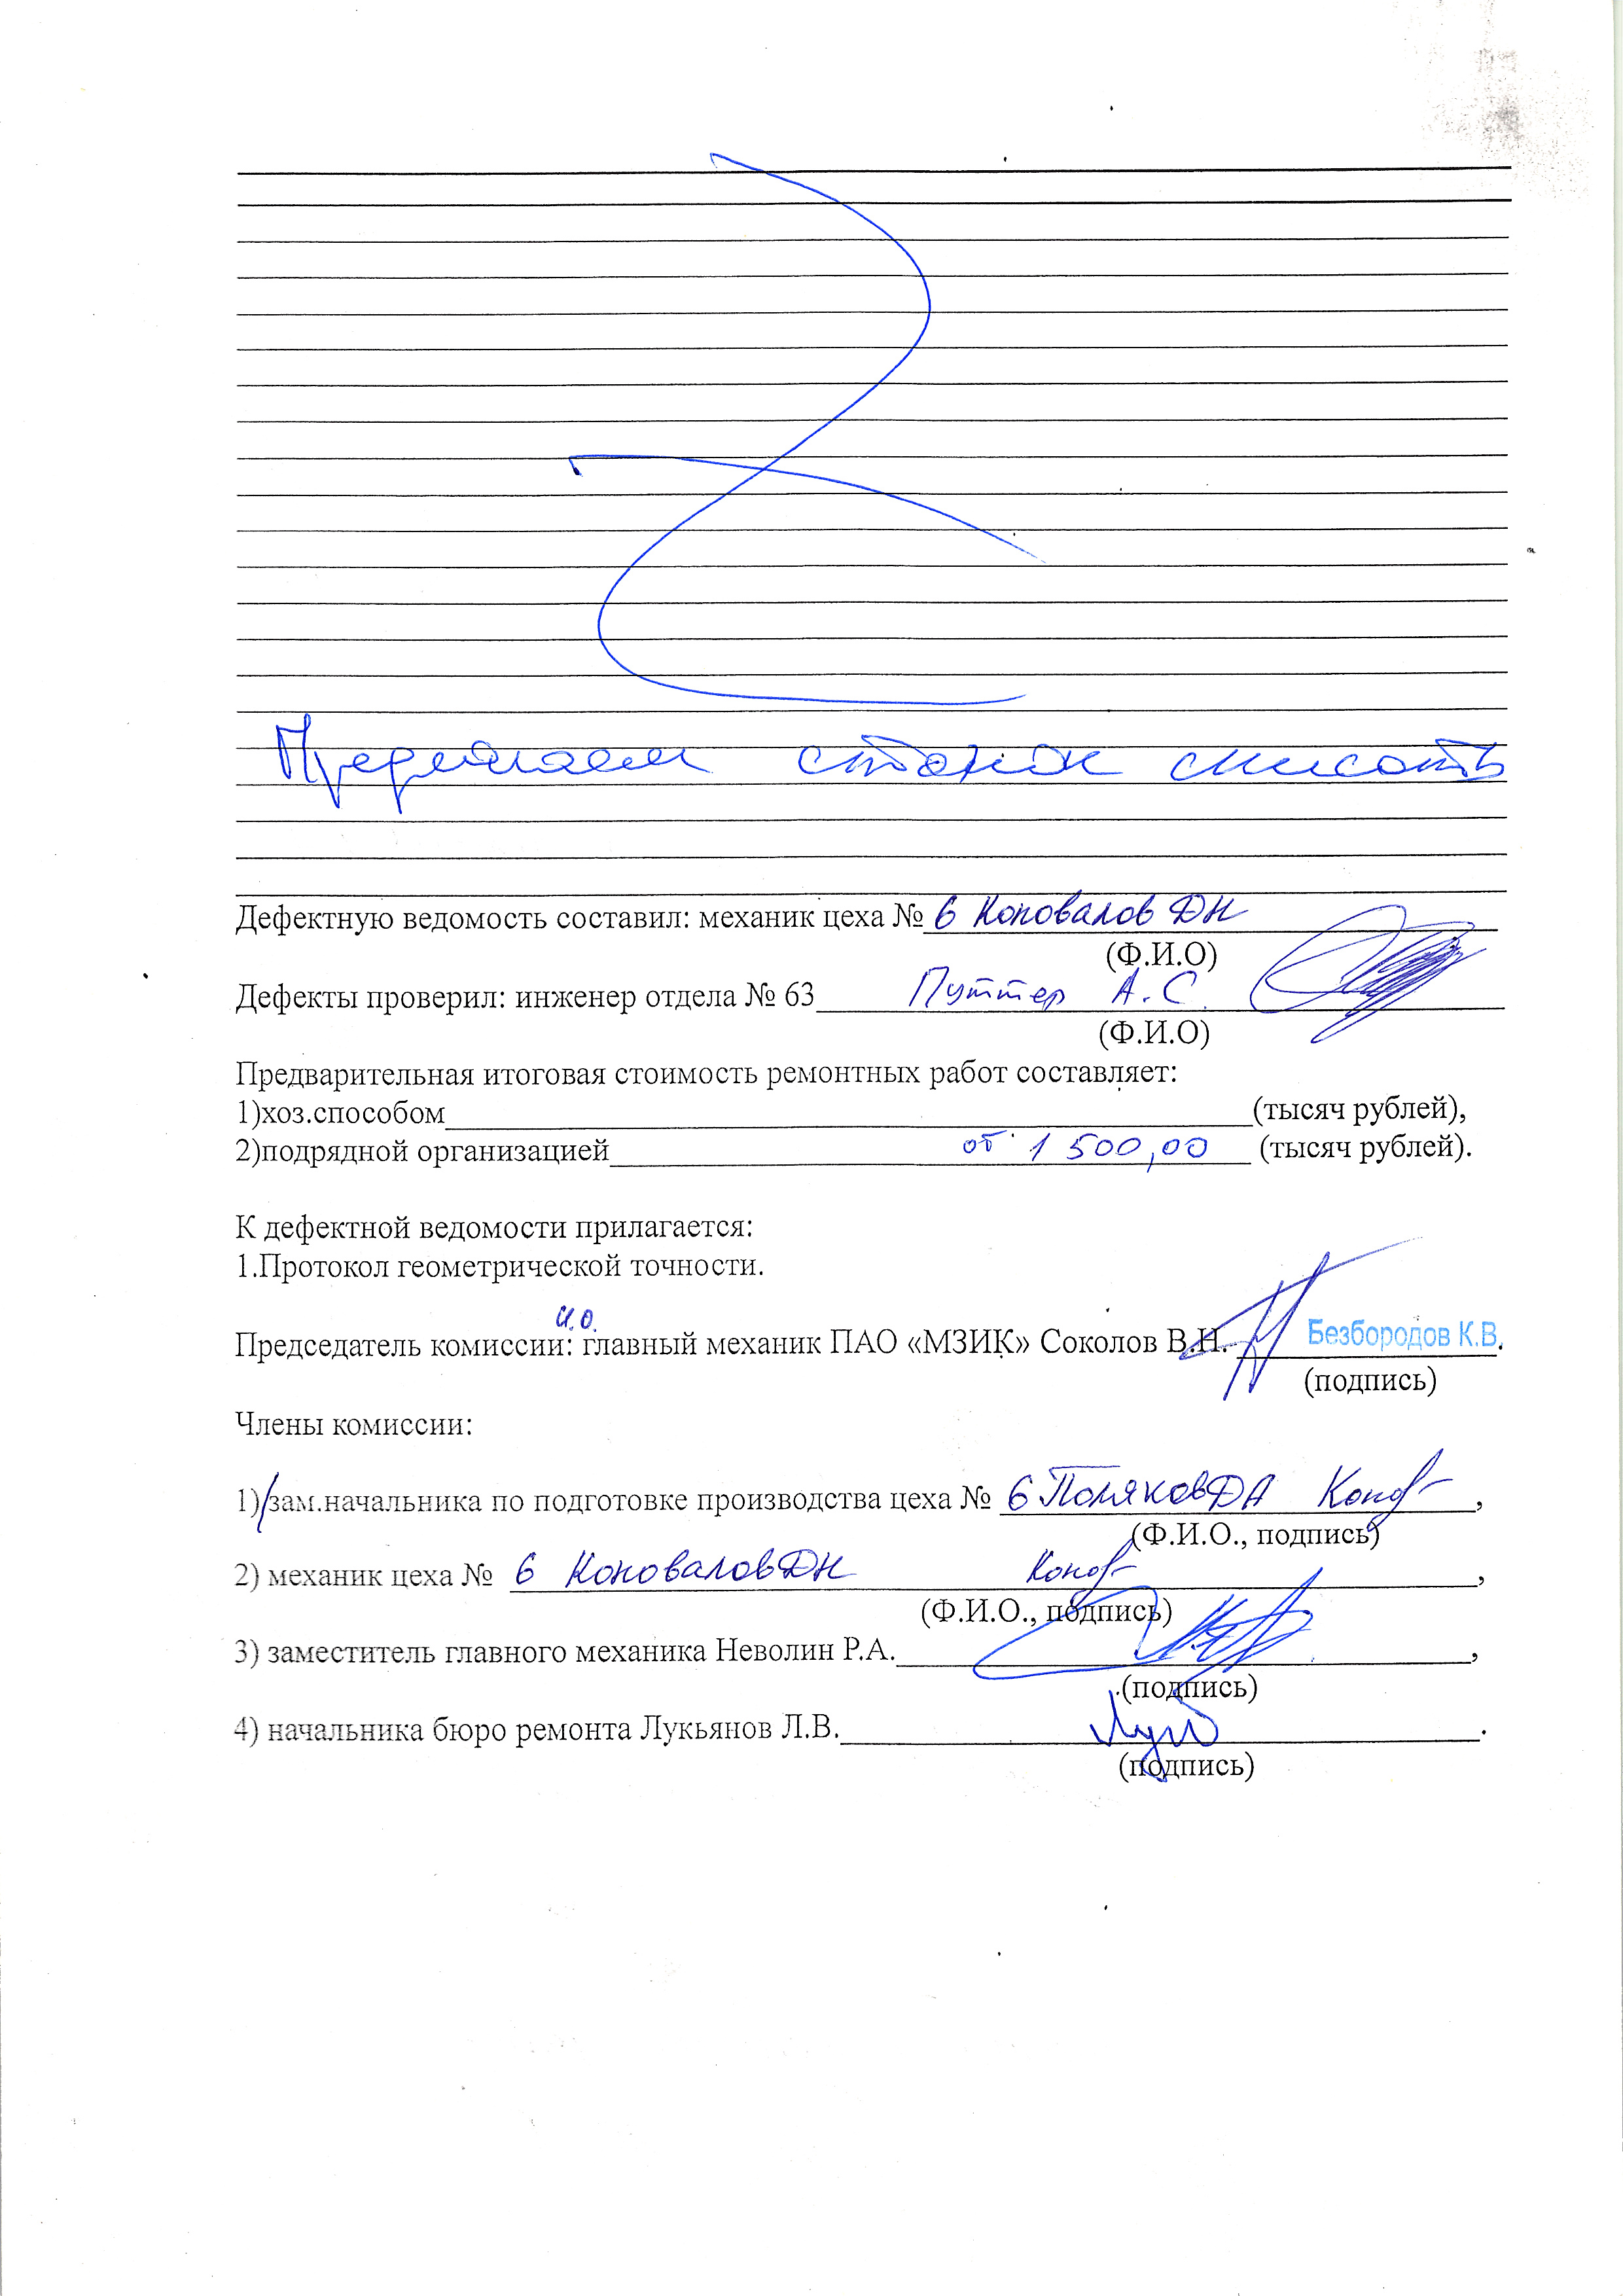 Предлагаем станок списать
Дефектную ведомость составил: механик цеха № 6 Коновалов ДН
(Ф.И.О)
Дефекты проверил: инженер отдела № 63 Путтер А.С
(Ф.И.О)
Предварительная итоговая стоимость ремонтных работ составляет:
1)хоз.способом (тысяч рублей),
2)подрядной организацией от 1 500,00 (тысяч рублей).
К дефектной ведомости прилагается:
1.Протокол геометрической точности.
И.О.
Председатель комиссии: главный механик ПАО «МЗИК» Соколов В.Н. Безбородов К.В.
(подпись)
Члены комиссии:
1) зам.начальника по подготовке производства цеха № 6 Поляков ДА
(Ф.И.О., подпись)
2) механик цеха № 6 Коновалов ДН
(Ф.И.О., подпись)
3) заместитель главного механика Неволин Р.А.
(подпись)
4) начальника бюро ремонта Лукьянов Л.В.
(подпись)